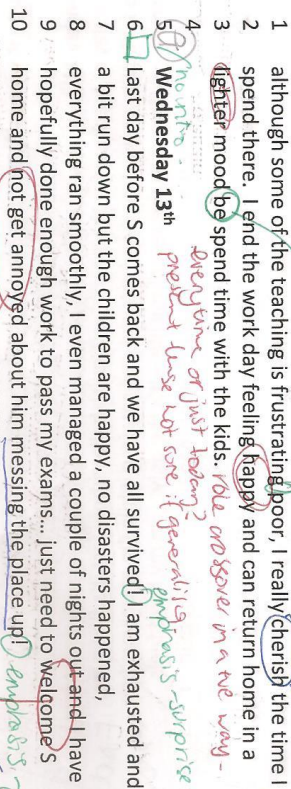 1 although some of the teaching is frustrating poor, I really cherish the time I
2 spend there. I end the work day feeling happy and can return home in a
3 lighter mood be spend time with the kids. role crossover in a +ve way -
4 everytime or just today?
present tense not sure if generality
5 Wednesday 13th
emphasis - surprise
6 Last day before S comes back and we have all survived! I am exhausted and
7 a bit run down but the children are happy, no disasters happened,
8 everything ran smoothly, I even managed a couple of nights out and I have
9 hopefully done enough work to pass my exams... just need to welcome S
10 home and not get annoyed about him messing the place up! emphasis -